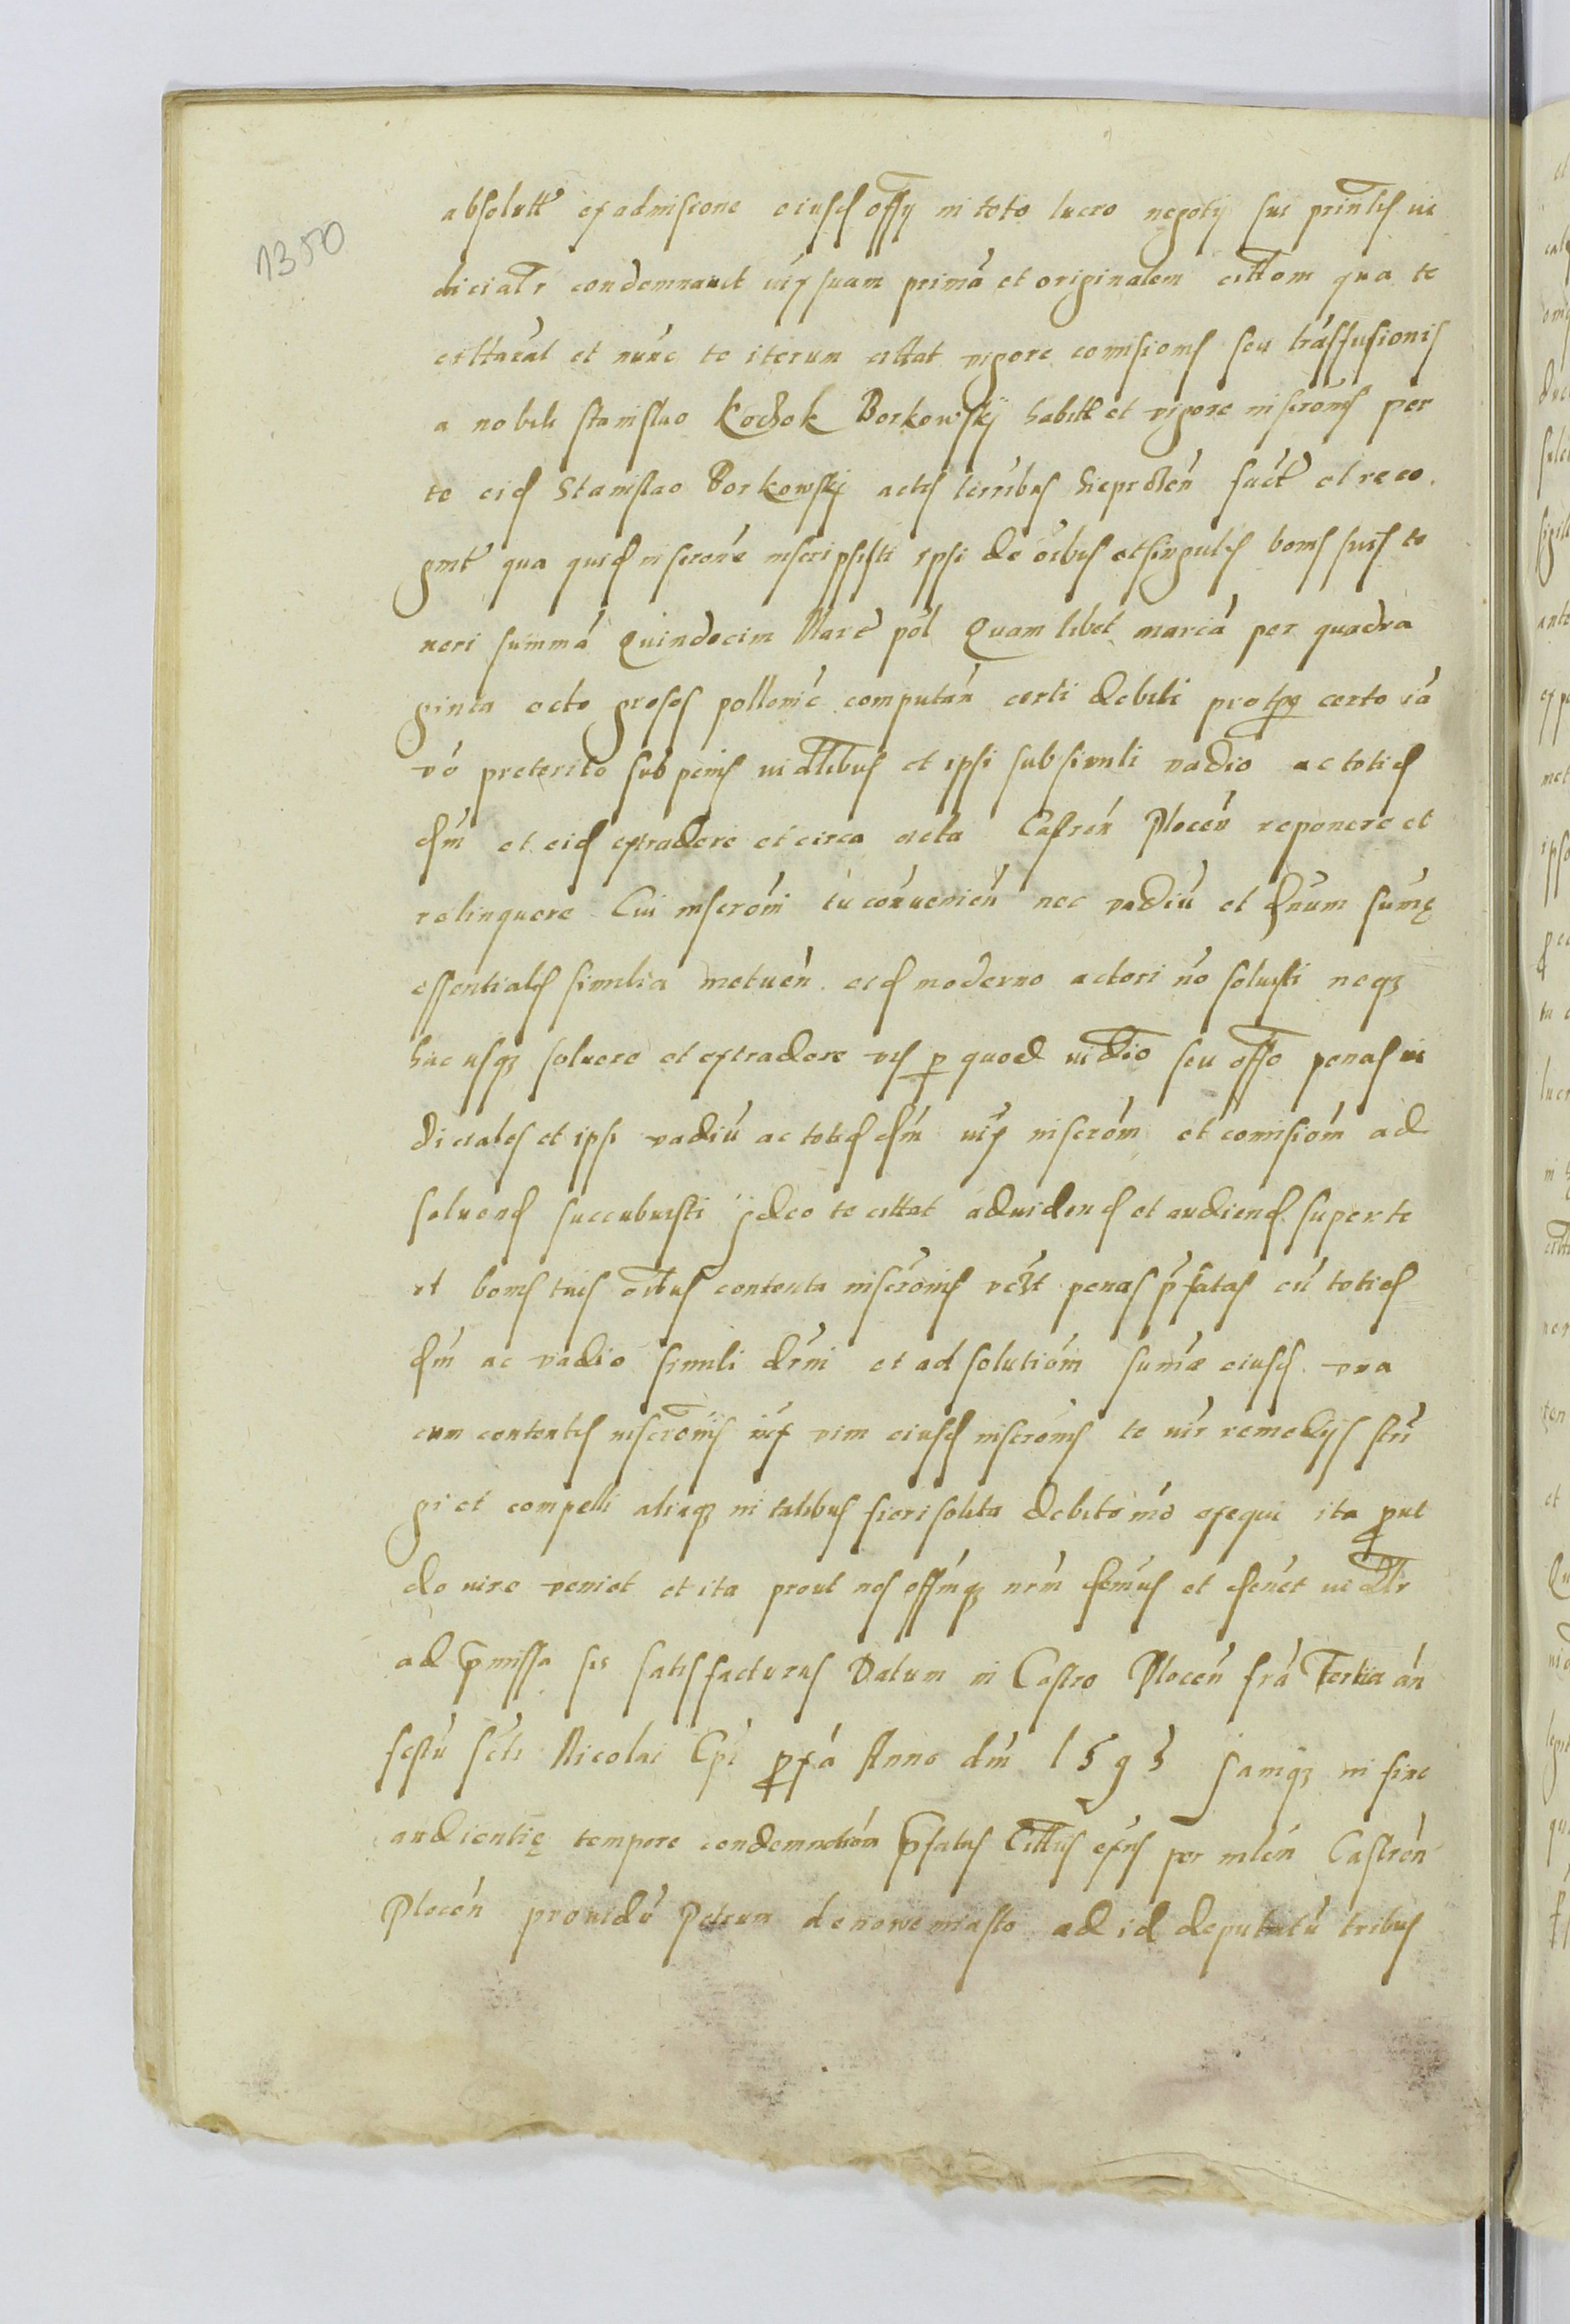 1350
absolutt ex admisione eiusd offij in toto lucro negotij sui prinlis iu
diciatr condemnauit iux suam primá et originalem cittom qua te
cittarat et nunc te iterum cittat vigore comisionis seu trásfusionis
a nobili stanislao Kochok Borkowskij habitt et vigore inscronis per
te eid Stanislao Borkowskij actis terribus Sieprcen fact et reco
gnit qua quid inscrone inscripsisti ipsi de oibus et singulis bonis suis te
neri summá Quindecim Marc pol Quam libet marcá per quadra
ginta octo grosos pollonic compután certi debiti pro tpe certo iá
vó preterito sub penis iudlibus et ipsi sub simili vadio ac toties
dm et eid extradere et circa acta Castren Plocen reponere et
relinquere Cui inscroni tu conuenien nec vadiú et dnum sumę
essentialis similia metuen eid moderno actori nó soluisti neqz
huc usqz soluere et extradere vis p quod iudio seu offo penas iu
diciales et ipsi vadiú ac toties dm iux inscrom et comisiom ad
soluend succubuisti jdeo te cittat aduidend et audiend super te
et bonis tuis oibus contenta inscronis penas pfatas cú toties
dm ac vadio simili et ad solutiom sumæ eiusd vna
cum contentis inscronis iux vim eiusd inscronis te iur remedijs stri
gi et compelli aliaqz in talibus fieri solita debito mó exequi ita put
de iure veniet et ita prout nos offmqz nrm et iudlr
ad pmissa sis satisfacturus Datum in Castro Plocen frá Tertia án
festú scti Nicolai Epi pxá Anno dm 1593 Jamqz in fine
audientię tempore condemnationi pfatus Cittus exns per mlen Castren
Plocen prouidú Petrum de nowemiasto ad id deputatú tribus